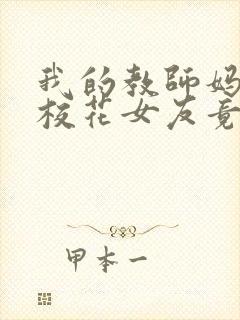 我的教師妈
校花女友竟
甲本一